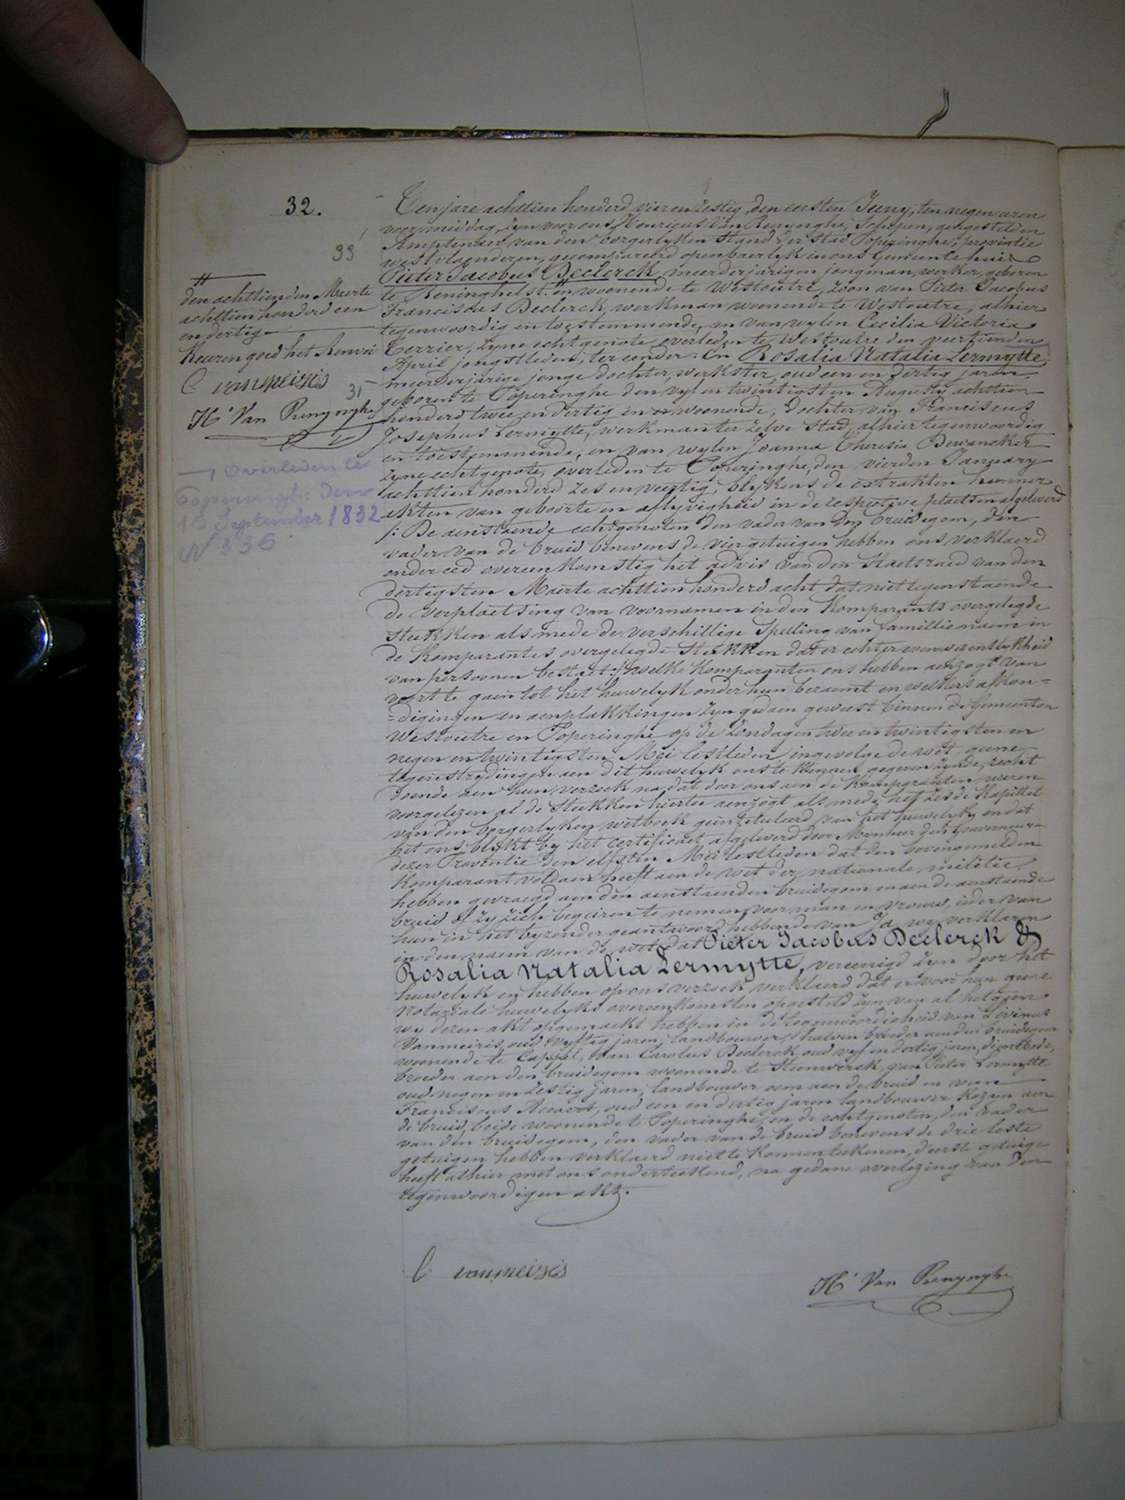 32.
Ten jare achttien honderd vier en zestig, den eersten Juny, ten negen uren
voor middag, zyn voor ons Henricus Van Renynghe, Schepen, gekostelden
Amptenaer van den borgerlyken Stand der Stad Poperinghe, provintie
westvlaenderen, gecompareerd openbaerlyk in ons Gemeente huis
Pieter Jacobus Declerck, meerderjarigen jongman, werker, geboren
te Reninghelst # en woonende te Westoutre, zoon van Pieter Jacobus
Franciscus Declerck, werkman woonende te Westoutre, alhier
tegenwoordig en toestemmende, en van wylen Cecilia Victoria
Terrier, zyne echtgenote overleden te Westoutre den veertienden
April jongstleden, ter eender. En Rosalia Natalia Lermytte,
meerderjarige jonge dochter, werkster, oud een en dertig jaren
geboren te Poperinghe den vyf en twintigsten Augusty achttien
honderd twee en dertig en er woonende, dochter van Franciscus
Josephus Lermytte, werkman ter zelve Stad, alhier tegenwoordig
en toestemmende, en van wylen Joanna Theresia Dewancker
zyne echtgenote, overleden te Poperinghe, den vierden January
achttien honderd zes en veertig, blykens de extrakten hunner
akten van geboorte en aflyvigheid in de respective plaetsen afgeleverd
/: De aenstaende echtgenoten den vader van den bruidegom, den
vader van de bruid benevens de vier getuigen hebben ons verklaerd
onder eed overeenkomstig het advis van den Staetsraed van den
dertigsten Maerte achttien honderd acht dat niettegenstaende
de verplaetsing van voornamen in den komparants overgelegde
stukken als mede de verschillige spelling van famillie naem in
de komparantes overgelegde stukken dat er echter eenwezentlykheid
van persoonen bestaet :/ welke komparanten ons hebben aenzogt van
voort te gaen tot het huwelyk onder hun beraemt en welkers afkon=
=digingen en aenplakkingen zyn gedaen geweest binnen de Gemeenten
Westoutre en Poperinghe op de zondagen twee en twintigsten en
negen en twintigsten Mei lestleden, ingevolge de wet geene
tegenstrydingen aen dit huwelyk ons te kennen gegeven zynde, recht
doende aen hun verzoek na dat door ons aen de komparanten waren
voorgelezen al de stukken hiertoe aenzogt als mede het zesde kapittel
van den borgerlyken wetboek geintituleerd van het huwelyk, en dat
het ons blykt by het certificaet afgeleverd door Mynheer den Gouverneur
dezer Provintie den elfsten Mei lestleden dat den bovengemelden
komparant voldaen heeft aen de wet der nationale militie,
hebben gevraegd aen den aenstaenden bruidegom en aen de aenstaende
bruid of zy zich begeiren te nemen voor man en vrouw, ieder van
hun in het byzonder geantwoord hebbende van Ja, wy verklaren
in den naem van de wet, dat Pieter Jacobus Declerck &
Rosalia Natalia Lermytte, vereenigd zyn door het
huwelyk en hebben op ons verzoek verklaerd dat er voor hun geene
Notariale huwelyks overeenkomsten opgesteld zyn van al hetgeen
wy dezen akt opgemaekt hebben in de tegenwoordigheid van Livinus
Vanmeiris, oud vyftig jaren, landbouwer, halven broeder aen den bruidegom
woonende te Cappel, van Carolus Declerck oud vyf en dertig jaren, dienstbode,
broeder aen den bruidegom woonende te Steenwerck, van Pieter Lermytte
oud negen en zestig jaren, landbouwer oom aen de bruid en van
Franciscus oud een en dertig jaren landbouwer kozyn aen
de bruid, beide woonende te Poperinghe, en de echtgenoten, den vader
van den bruidegom, den vader van de bruid benevens de drie leste
getuigen hebben verklaerd niet te konnen teekenen, d'eerste getuige
heeft alhier met ons onderteekend, na gedane overlezing van den
tegenwoordigen akt.
33
#
den achttienden Maerte
achttien honderd een
en dertig
keuren goed het Renvoi
L vanmeiris
31
H. Van Renynghe
overleden te
Poperinghe den
15 September 1832
N 336
L vanmeiris
H. Van Renynghe